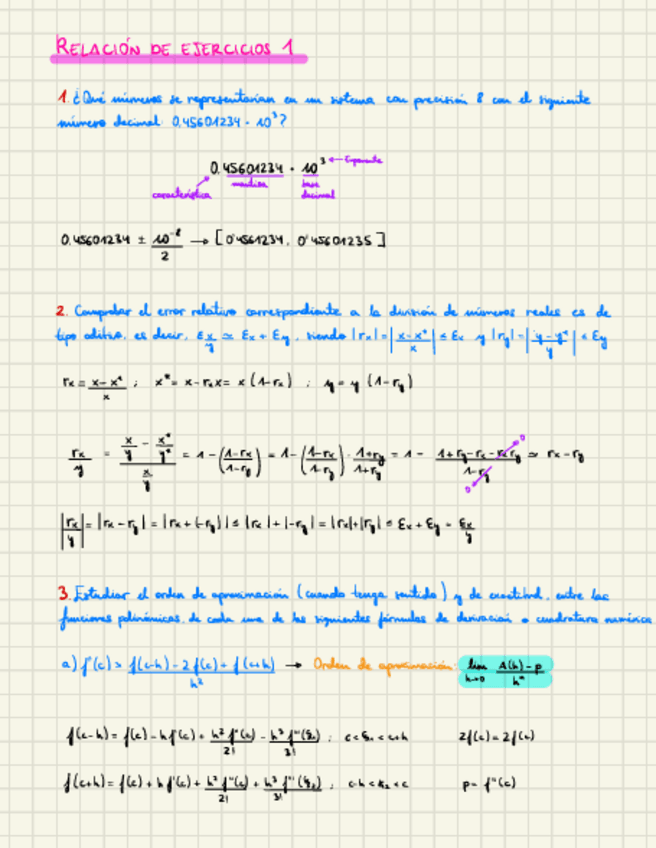 RELACIÓN DE EJERCICIOS 1
1. ¿Qué números se representarían en un sistema con precisión 8 con el siguiente
número decimal: 0.45601234 · 10³?
0.45601234 · 10³ ← Exponente
característica mantisa base
decimal
0.45601234 ± 10⁻⁸/2 → [0'4561234, 0'45601235]
2. Comprobar el error relativo correspondiente a la división de números reales es de
tipo aditivo, es decir, εx/y ≃ εx + εy, siendo |rx| = |(x-x*)/x| ≤ εx y |ry| = |(y-y*)/y| ≤ εy
rx = (x-x*)/x ; x* = x - rx x = x (1-rx) ; y = y (1-ry)
rx/y = (x/y - x*/y*)/(x/y) = 1 - ((1-rx)/(1-ry)) = 1 - ((1-rx)/(1-ry)) · (1+ry)/(1+ry) = 1 - (1+ry-rx-rxry)/(1-ry) ≃ rx-ry
|rx/y| = |rx-ry| = |rx+(-ry)| ≤ |rx|+|-ry| = |rx|+|ry| ≤ εx + εy = εx/y
3. Estudiar el orden de aproximación (cuando tenga sentido) y de exactitud, entre las
funciones polinómicas, de cada una de las siguientes fórmulas de derivación o cuadratura numérica
a) f''(c) ≃ (f(c-h) - 2f(c) + f(c+h))/h² → Orden de aproximación: lim h→0 (A(h)-p)/hⁿ
f(c-h) = f(c) - hf'(c) + h² f''(c)/2! - h³ f'''(ξ₁)/3! ; c<ξ₁<c+h 2f(c) = 2f(c)
f(c+h) = f(c) + hf'(c) + h² f''(c)/2! + h³ f'''(ξ₂)/3! ; c-h<ξ₂<c p = f''(c)